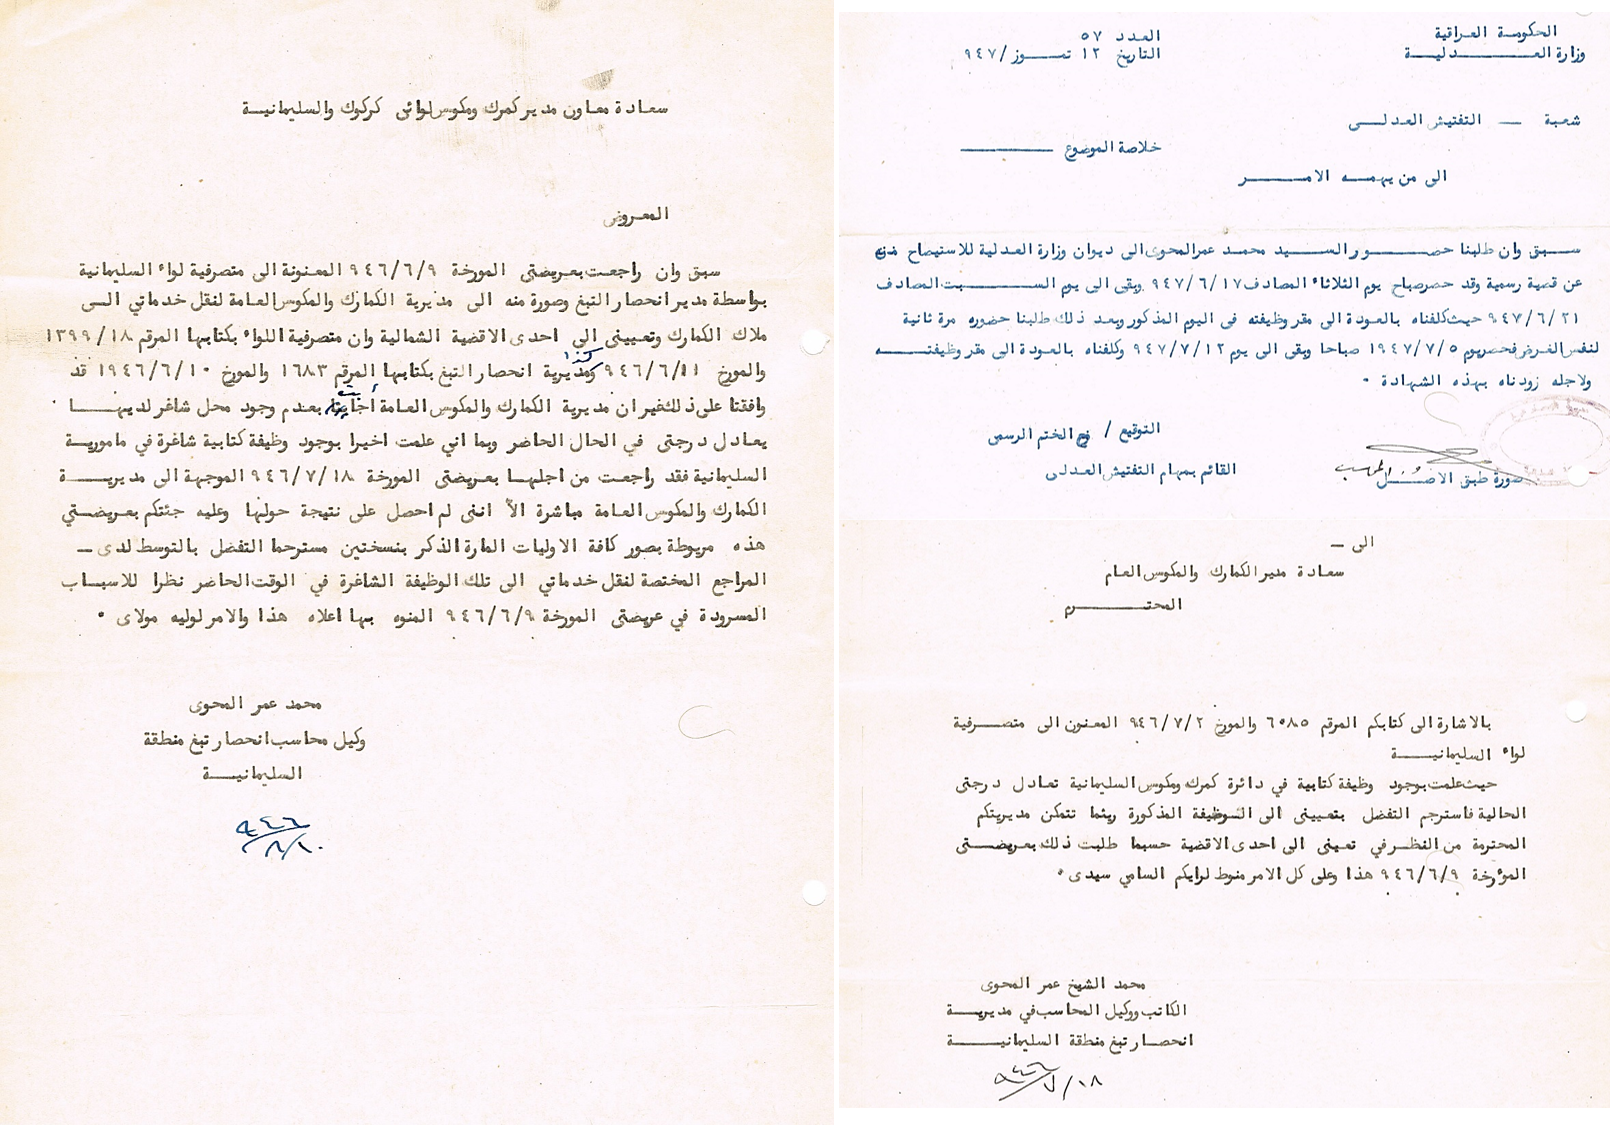 سعادة معاون مدير كمرك ومكوس لوائى كركوك والسليمانية
المعروض
سبق وان راجعت بعريضتى المورخة ٩٤٦/٦/٩ المعنونة الى متصرفية لواء السليمانية
بواسطة مدير انحصار التبغ وصورة منه الى مديرية الكمارك والمكوس العامة لنقل خدماتي الى
ملاك الكمارك وتعيينى الى احدى الاقضية الشمالية وان متصرفية اللواء بكتابها المرقم ١٣٩٩/١٨
والمورخ ٩٤٦/٦/١١ وكذا مديرية انحصار التبغ بكتابها المرقم ١٦٨٣ والمورخ ١٩٤٦/٦/١٠ قد
وافقتا على ذلك غير ان مديرية الكمارك والمكوس العامة اجابت بعدم وجود محل شاغر لديها
يعادل درجتى في الحال الحاضر وبما اني علمت اخيرا بوجود وظيفة كتابية شاغرة في مامورية
السليمانية فقد راجعت من اجلها بعريضتى المورخة ٩٤٦/٧/١٨ الموجهة الى مديرية
الكمارك والمكوس العامة مباشرة الا اننى لم احصل على نتيجة حولها وعليه جئتكم بعريضتي
هذه مربوطة بصور كافة الاوليات المارة الذكر بنسختين مسترحما التفضل بالتوسط لدى ـ
المراجع المختصة لنقل خدماتي الى تلك الوظيفة الشاغرة في الوقت الحاضر نظرا للاسباب
المسرودة في عريضتى المورخة ٩٤٦/٦/٩ المنوه بها اعلاه هذا والامر لوليه مولاى ٠
محمد عمر المحوى
وكيل محاسب انحصار تبغ منطقة
السليمانية
٩٤٦/٨/١٠
الحكومة العراقية
وزارة العدلية
العدد ٥٧
التاريخ ١٢ تموز/٩٤٧
شعبة ـ التفتيش العدلى
خلاصة الموضوع
الى من يهمه الامر
سبق وان طلبنا حضور السيد محمد عمر المحوى الى ديوان وزارة العدلية للاستيضاح منه
عن قضية رسمية وقد حضر صباح يوم الثلاثاء المصادف ٩٤٧/٦/١٧ وبقى الى يوم السبت المصادف
٩٤٧/٦/٢١ حيث كلفناه بالعودة الى مقر وظيفته فى اليوم المذكور وبعد ذلك طلبنا حضوره مرة ثانية
لنفس الغرض فحضر يوم ١٩٤٧/٧/٥ صباحا وبقى الى يوم ٩٤٧/٧/١٢ وكلفناه بالعودة الى مقر وظيفته
ولاجله زودناه بهذه الشهادة ٠
التوقيع / مع الختم الرسمى
القائم بمهام التفتيش العدلى
صورة طبق الاصل
الى ـ
سعادة مدير الكمارك والمكوس العام
المحترم
بالاشارة الى كتابكم المرقم ٦٠٨٥ والمورخ ٩٤٦/٧/٢ المعنون الى متصرفية
لواء السليمانية
حيث علمت بوجود وظيفة كتابية في دائرة كمرك ومكوس السليمانية تعادل درجتى
الحالية فاسترحم التفضل بتعيينى الى الوظيفة المذكورة ريثما تتمكن مديريتكم
المحترمة من النظر في تعينى الى احدى الاقضية حسبما طلبت ذلك بعريضتى
المؤرخة ٩٤٦/٦/٩ هذا وعلى كل الامر منوط لرايكم السامي سيدى ٠
محمد الشيخ عمر المحوى
الكاتب ووكيل المحاسب في مديرية
انحصار تبغ منطقة السليمانية
٩٤٦/٧/١٨